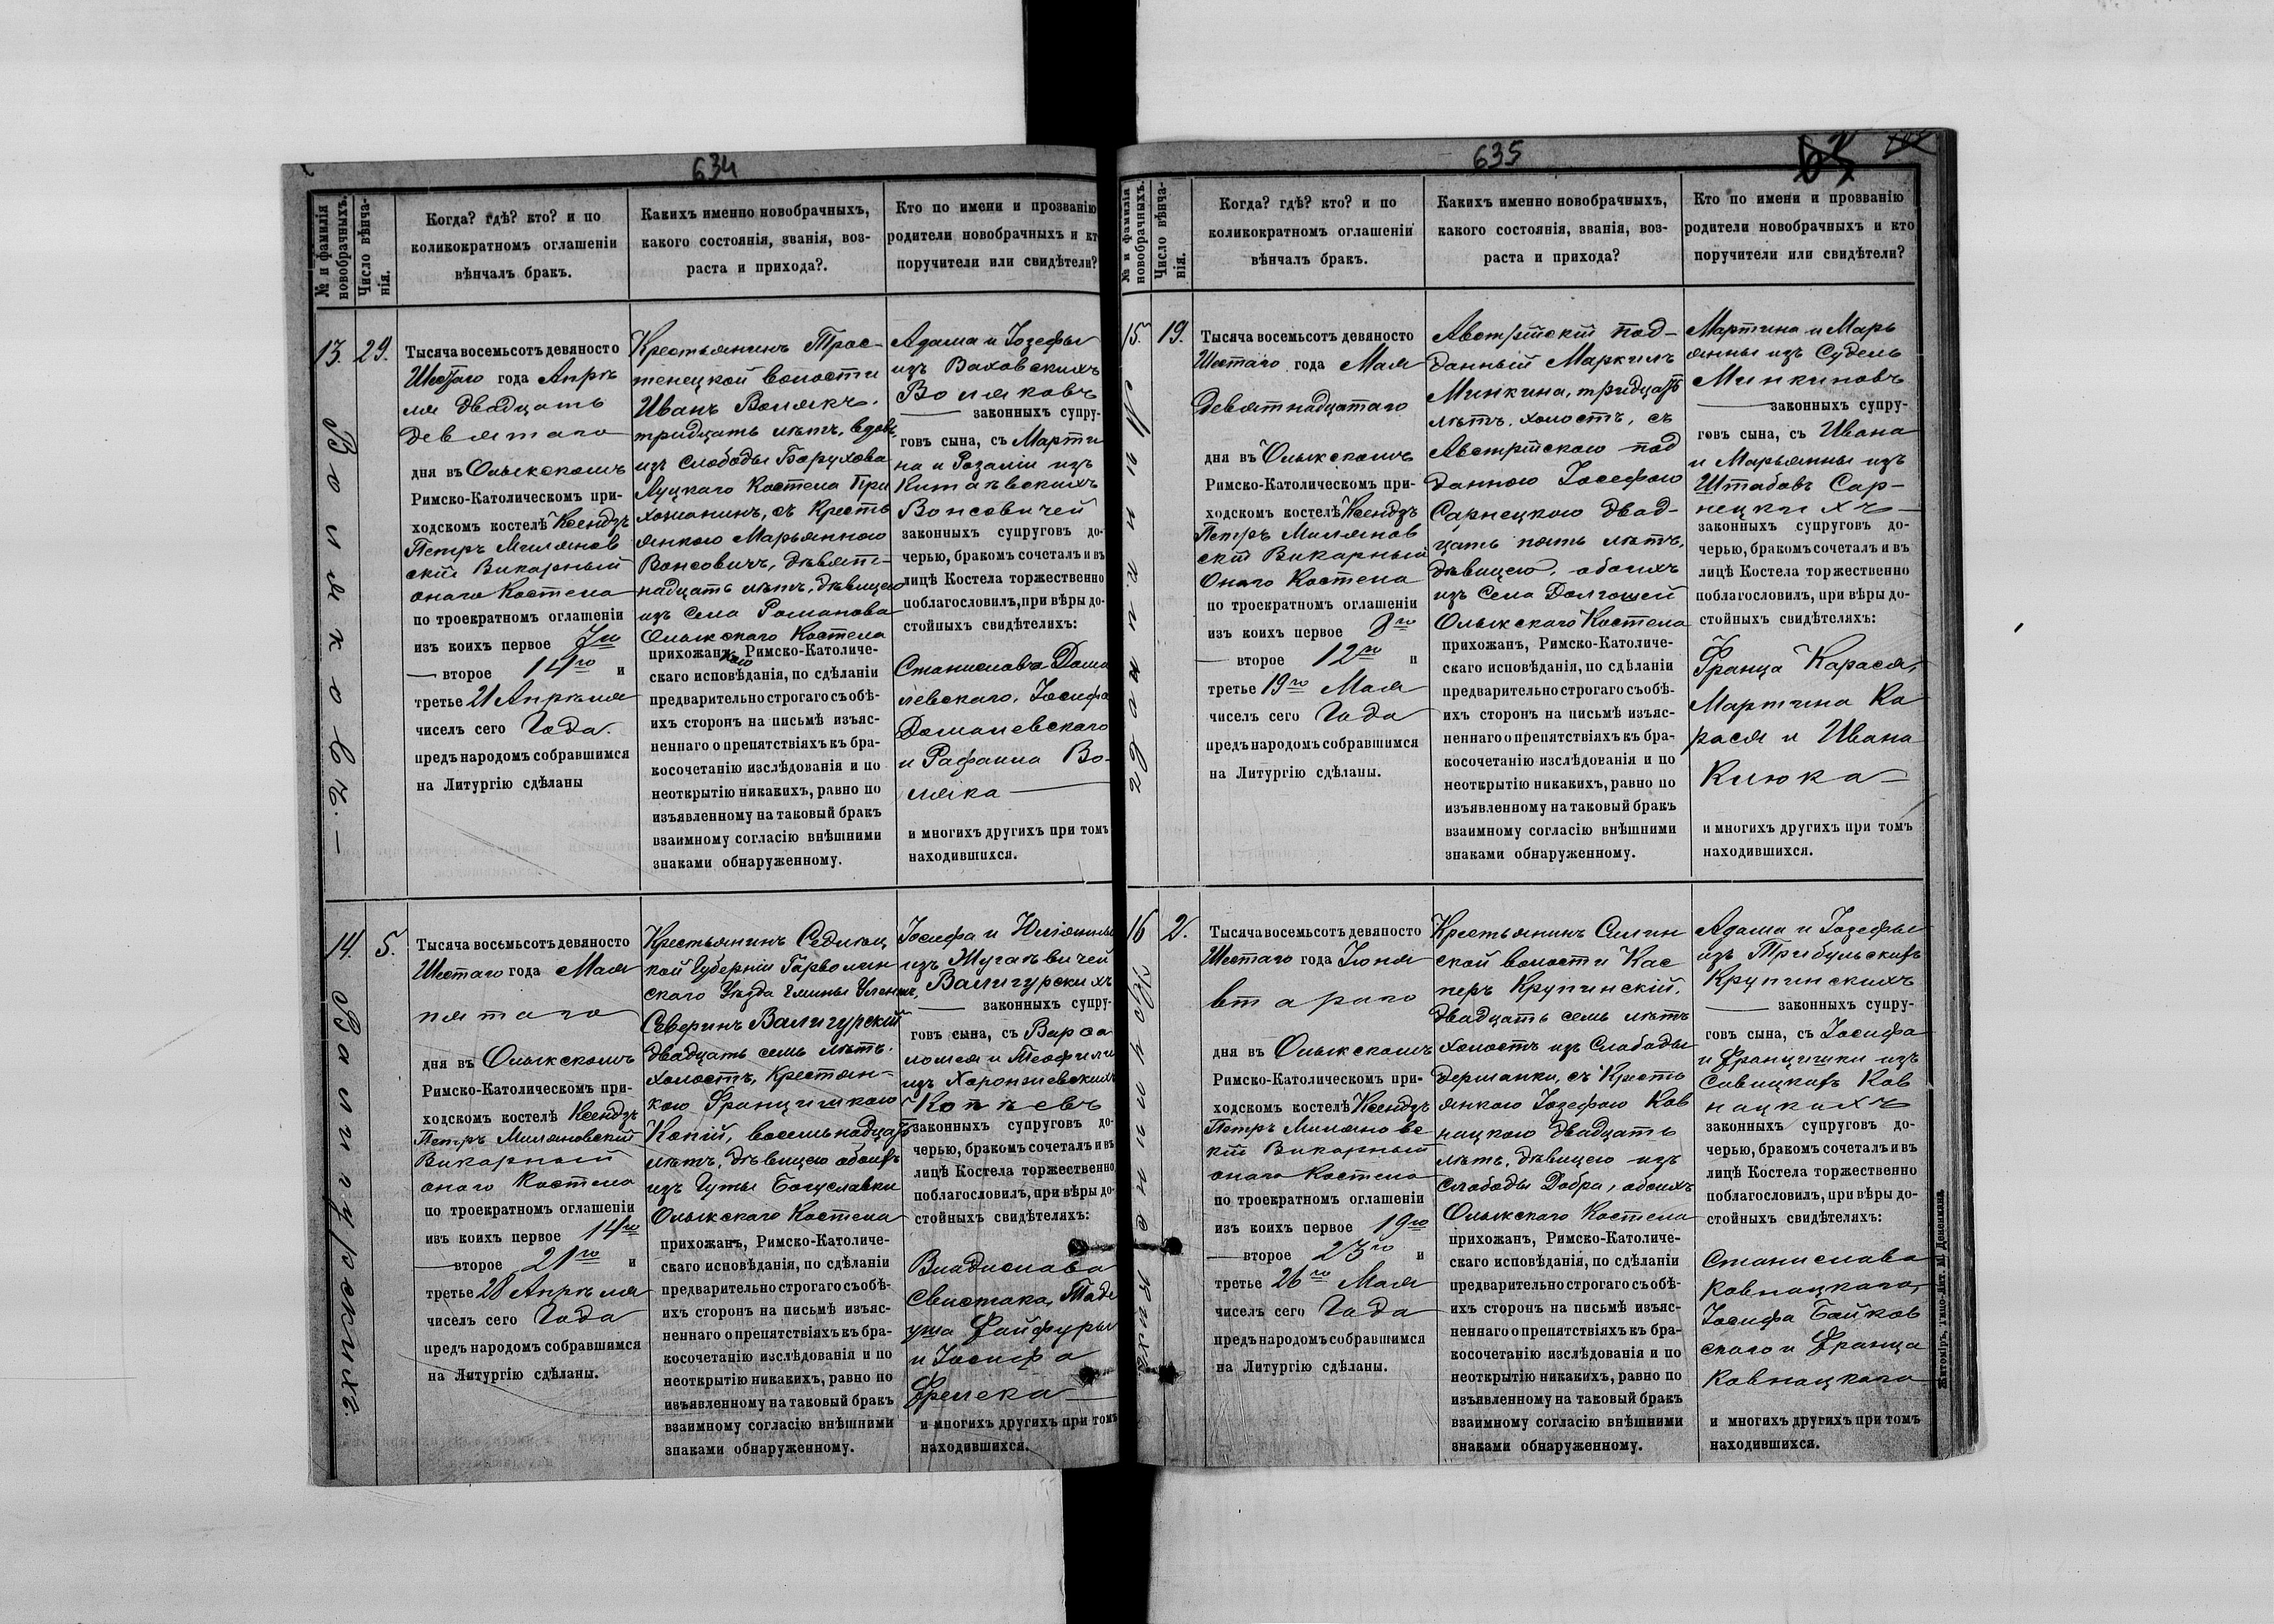 634
№ и фамилія новобрачныхъ.
Число вѣнчанія.
Когда? гдѣ? кто? и по
коликократномъ оглашеніи
вѣнчалъ бракъ.
Какихъ именно новобрачныхъ,
какого состоянія, званія, воз-
раста и прихода?.
Кто по имени и прозванію
родители новобрачныхъ и кт
поручители или свидѣтели?
13.
29.
Воляковъ. —
Тысяча восемьсотъ девяносто
Шестаго года Апрѣ
ля двадцать
девятаго
дня въ Олыкскомъ
Римско-Католическомъ при-
ходскомъ костелѣ Ксендзъ
Петръ Милянов
скій Викарный
онаго Костела
по троекратномъ оглашеніи
изъ коихъ первое 7го
— второе 14го и
третье 21 Апрѣля
чиселъ сего Года.
предъ народомъ собравшимся
на Литургію сдѣланы
Крестьянинъ Трос-
тенецкой волости
Иванъ Волякъ.
тридцать лѣтъ, вдов.
изъ слободы Борухова
Луцкаго Костела При
хожанинъ, съ Кресть
янкою Марьянною
Вонсовичъ, дѣвят-
надцать лѣтъ, дѣвицею
изъ Села Романова
Олыкскаго Костела
прихожанъ, Римско-Католиче-
скаго исповѣданія, по сдѣланіи
предварительно строгаго съ обѣ-
ихъ сторонъ на письмѣ изъяс-
неннаго о препятствіяхъ къ бра-
косочетанію изслѣдованія и по
неоткрытію никакихъ, равно по
изъявленному на таковый бракъ
взаимному согласію внѣшними
знаками обнаруженному.
Адама и Іозефы
изъВаховскихъ
Воляковъ
— законныхъ супру-
говъ сына, съ Марти
на и Розаліи изъ
Китаѣвскихъ
Вонсовичей
законныхъ супруговъ до-
черью, бракомъ сочеталъ и въ
лицѣ Костела торжественно
поблагословилъ, при вѣры до-
стойныхъ свидѣтеляхъ:
Станислава Дома
левскаго, Іосифа
Домалевскаго
и Рафаила Во-
ляка —
и многихъ другихъ при томъ
находившихся.
14.
5.
Валигурскихъ.
Тысяча восемьсотъ девяносто
Шестаго года Мая
пятаго
дня въ Олыкскомъ
Римско-Католическомъ при-
ходскомъ костелѣ Ксендзъ
Петръ Миляновскій
Викарный
онаго Костела
по троекратномъ оглашеніи
изъ коихъ первое 14го
— второе 21го и
третье 28 Апрѣля
чиселъ сего Года
предъ народомъ собравшимся
на Литургію сдѣланы.
Крестьянинъ Сѣдлец
кой Губерніи Гарволин
скаго Уѣзда Гмины
Северинъ Валигурскій
двадцать семь лѣтъ.
холостъ, Крестьян-
кою Францишкою
Копій, восемьнадцать
лѣтъ, дѣвицею обоихъ
изъ Гуты Богуславки
Олыкскаго Костела
прихожанъ, Римско-Католиче-
скаго исповѣданія, по сдѣланіи
предварительно строгаго съ обѣ-
ихъ сторонъ на письмѣ изъяс-
неннаго о препятствіяхъ къ бра-
косочетанію изслѣдованія и по
неоткрытію никакихъ, равно по
изъявленному на таковый бракъ
взаимному согласію внѣшними
знаками обнаруженному.
Іосифа и Юліанны
изъ
Валигурскихъ
— законныхъ супру-
говъ сына, съ Варѳо
ломея и Теофили
изъ Хоронжевскихъ
Копѣевъ
законныхъ супруговъ до-
черью, бракомъ сочеталъ и въ
лицѣ Костела торжественно
поблагословилъ, при вѣры до-
стойныхъ свидѣтеляхъ:
Владислава
Свистака, Таде
уша Файфуры
и Іосифа
Фрелека —
и многихъ другихъ при томъ
находившихся.
635
№ и фамилія новобрачныхъ.
Число вѣнчанія.
Когда? гдѣ? кто? и по
коликократномъ оглашеніи
вѣнчалъ бракъ.
Какихъ именно новобрачныхъ,
какого состоянія, званія, воз-
раста и прихода?
Кто по имени и прозванію
родители новобрачныхъ и кто
поручители или свидѣтели?
15.
19.
Тысяча восемьсотъ девяносто
Шестаго года Мая
девятнадцатаго
дня въ Олыкскомъ
Римско-Католическомъ при-
ходскомъ костелѣ Ксендзъ
Петръ Милянов
скій Викарный
Онаго Костела
по троекратномъ оглашеніи
изъ коихъ первое
— второе 12го и
третье 19го Мая
чиселъ сего Года
предъ народомъ собравшимся
на Литургію сдѣланы.
Австрійскій под-
данный Маркилъ
Минкина, тридцать
лѣтъ, холостъ, съ
Австрійскою под
данною Іосефою
Сарнецкою двад-
цать пять лѣтъ,
дѣвицею, обоихъ
изъ Села Долгошей
Олыкскаго Костела
прихожанъ, Римско-Католиче-
скаго исповѣданія, по сдѣланіи
предварительно строгаго съ обѣ-
ихъ сторонъ на письмѣ изъяс-
неннаго о препятствіяхъ къ бра-
косочетанію изслѣдованія и по
неоткрытію никакихъ, равно по
изъявленному на таковый бракъ
взаимному согласію внѣшними
знаками обнаруженному.
Мартина и Марь
янны изъ Судель
Минкиновъ
— законныхъ супру-
говъ сына, съ Ивана
и Марьянны изъ
Штабовъ Сар-
нецкихъ —
законныхъ супруговъ до-
черью, бракомъ сочеталъ и въ
лицѣ Костела торжественно
поблагословилъ, при вѣры до-
стойныхъ свидѣтеляхъ:
Франца Карася,
Мартина Ка
рася и Ивана
Клюка —
и многихъ другихъ при томъ
находившихся.
16
2.
Тысяча восемьсотъ девяносто
Шестаго года Іюня
втараго
дня въ Олыкскомъ
Римско-Католическомъ при-
ходскомъ костелѣ Ксендзъ
Петръ Миляновс
кій Викарный
онаго Костела
по троекратномъ оглашеніи
изъ коихъ первое 19го
— второе 23го и
третье 26го Мая
чиселъ сего Года
предъ народомъ собравшимся
на Литургію сдѣланы.
Крестьянинъ Силин
ской волости Кас
перъ Крупинскій.
двадцать семь лѣтъ
холостъ изъ Слободы
Держанки, съ Кресть
янкою Іозефою Ков
нацкою двадцать
лѣтъ, дѣвицею изъ
Слободы Добра, обоихъ
Олыкскаго Костела
прихожанъ, Римско-Католиче-
скаго исповѣданія, по сдѣланіи
предварительно строгаго съ обѣ-
ихъ сторонъ на письмѣ изъяс-
неннаго о препятствіяхъ къ бра-
косочетанію изслѣдованія и по
неоткрытію никакихъ, равно по
изъявленному на таковый бракъ
взаимному согласію внѣшними
знаками обнаруженному.
Адама и Іозефы
изъ Трибульскихъ
Крупинскихъ
— законныхъ супру-
говъ сына, съ Іосифа
и Францишки изъ
Савицкихъ Ков
нацкихъ
законныхъ супруговъ до-
черью, бракомъ сочеталъ и въ
лицѣ Костела торжественно
поблагословилъ, при вѣры до-
стойныхъ свидѣтеляхъ:
Станислава
Ковнацкаго,
Іосифа Байков
скаго и Франца
Ковнацкаго
и многихъ другихъ при томъ
находившихся.
Житоміръ, Типо-Лит. М. Дененмана.